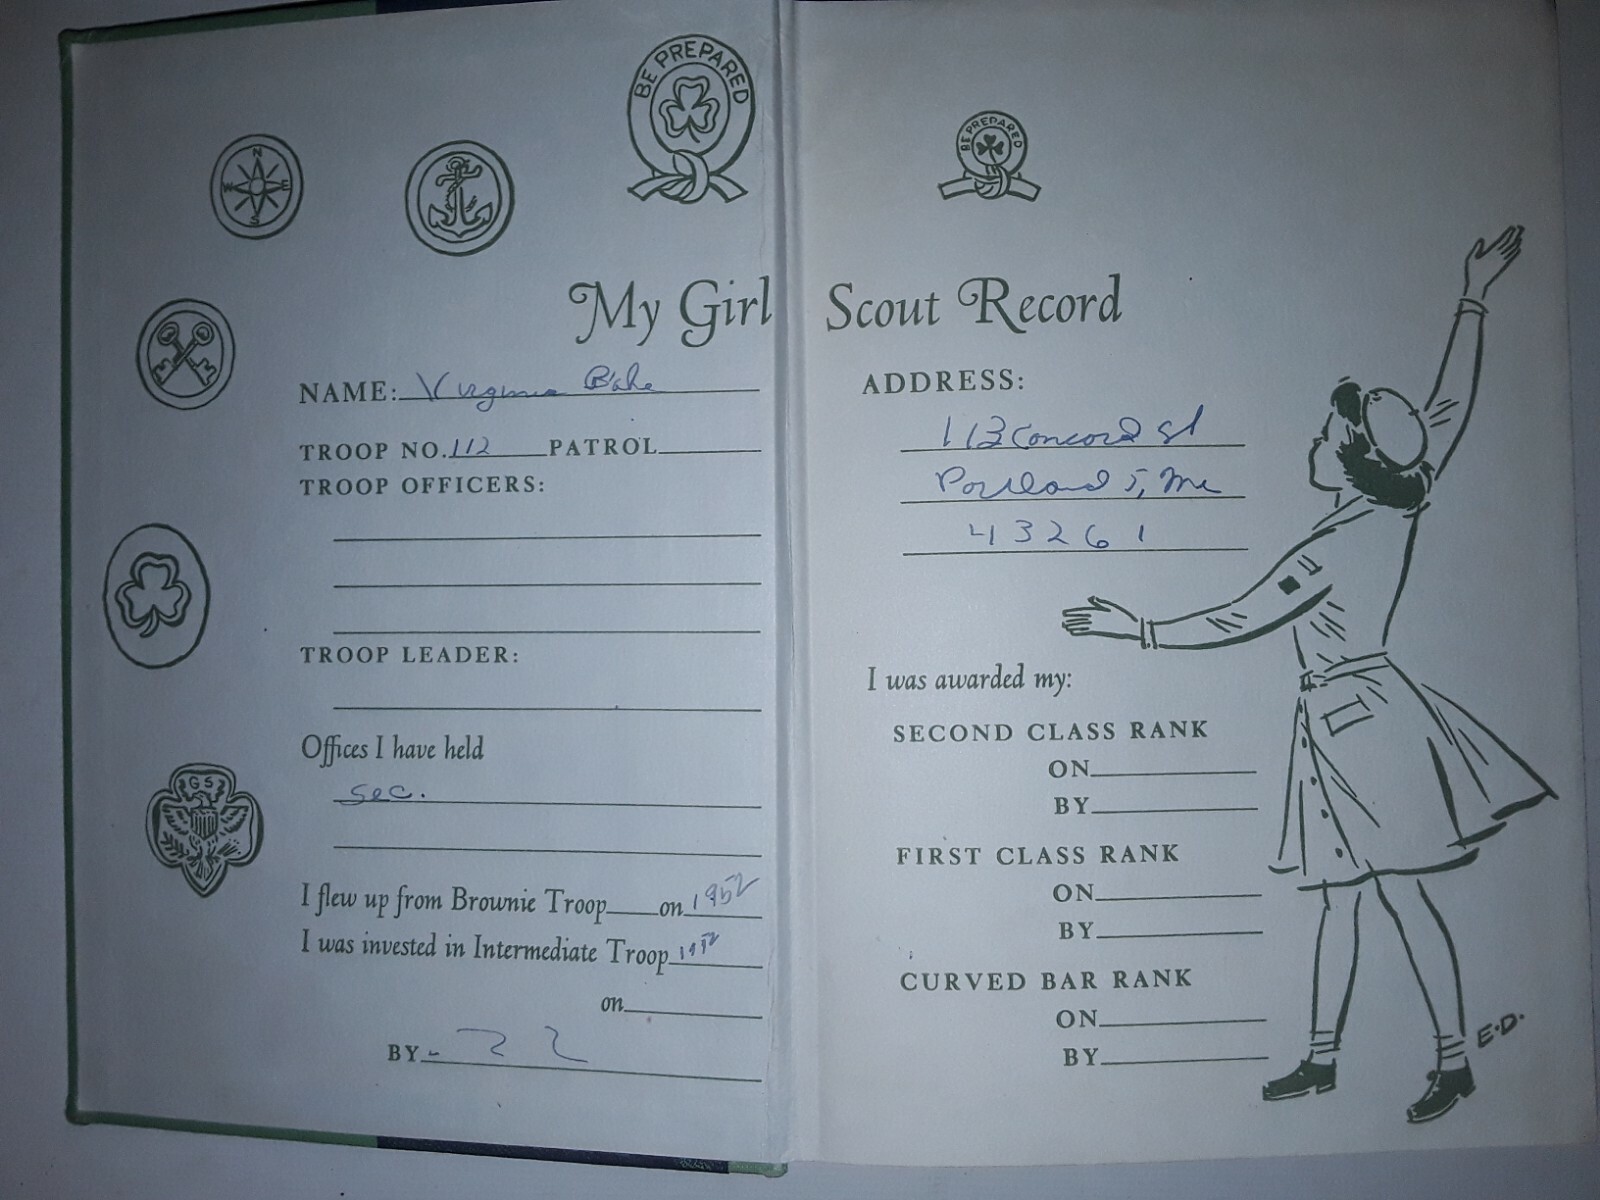 BE PREPARED
N
W E
S
BE PREPARED
My Girl Scout Record
NAME: Virginia
TROOP NO. 112 PATROL
TROOP OFFICERS:
TROOP LEADER:
Offices I have held
Sec.
GS
I flew up from Brownie Troop on 1952
I was invested in Intermediate Troop 1952
on
BY
ADDRESS:
113 Concord St
Portland 5, Me
43261
I was awarded my:
SECOND CLASS RANK
ON
BY
FIRST CLASS RANK
ON
BY
CURVED BAR RANK
ON
BY
E.D.